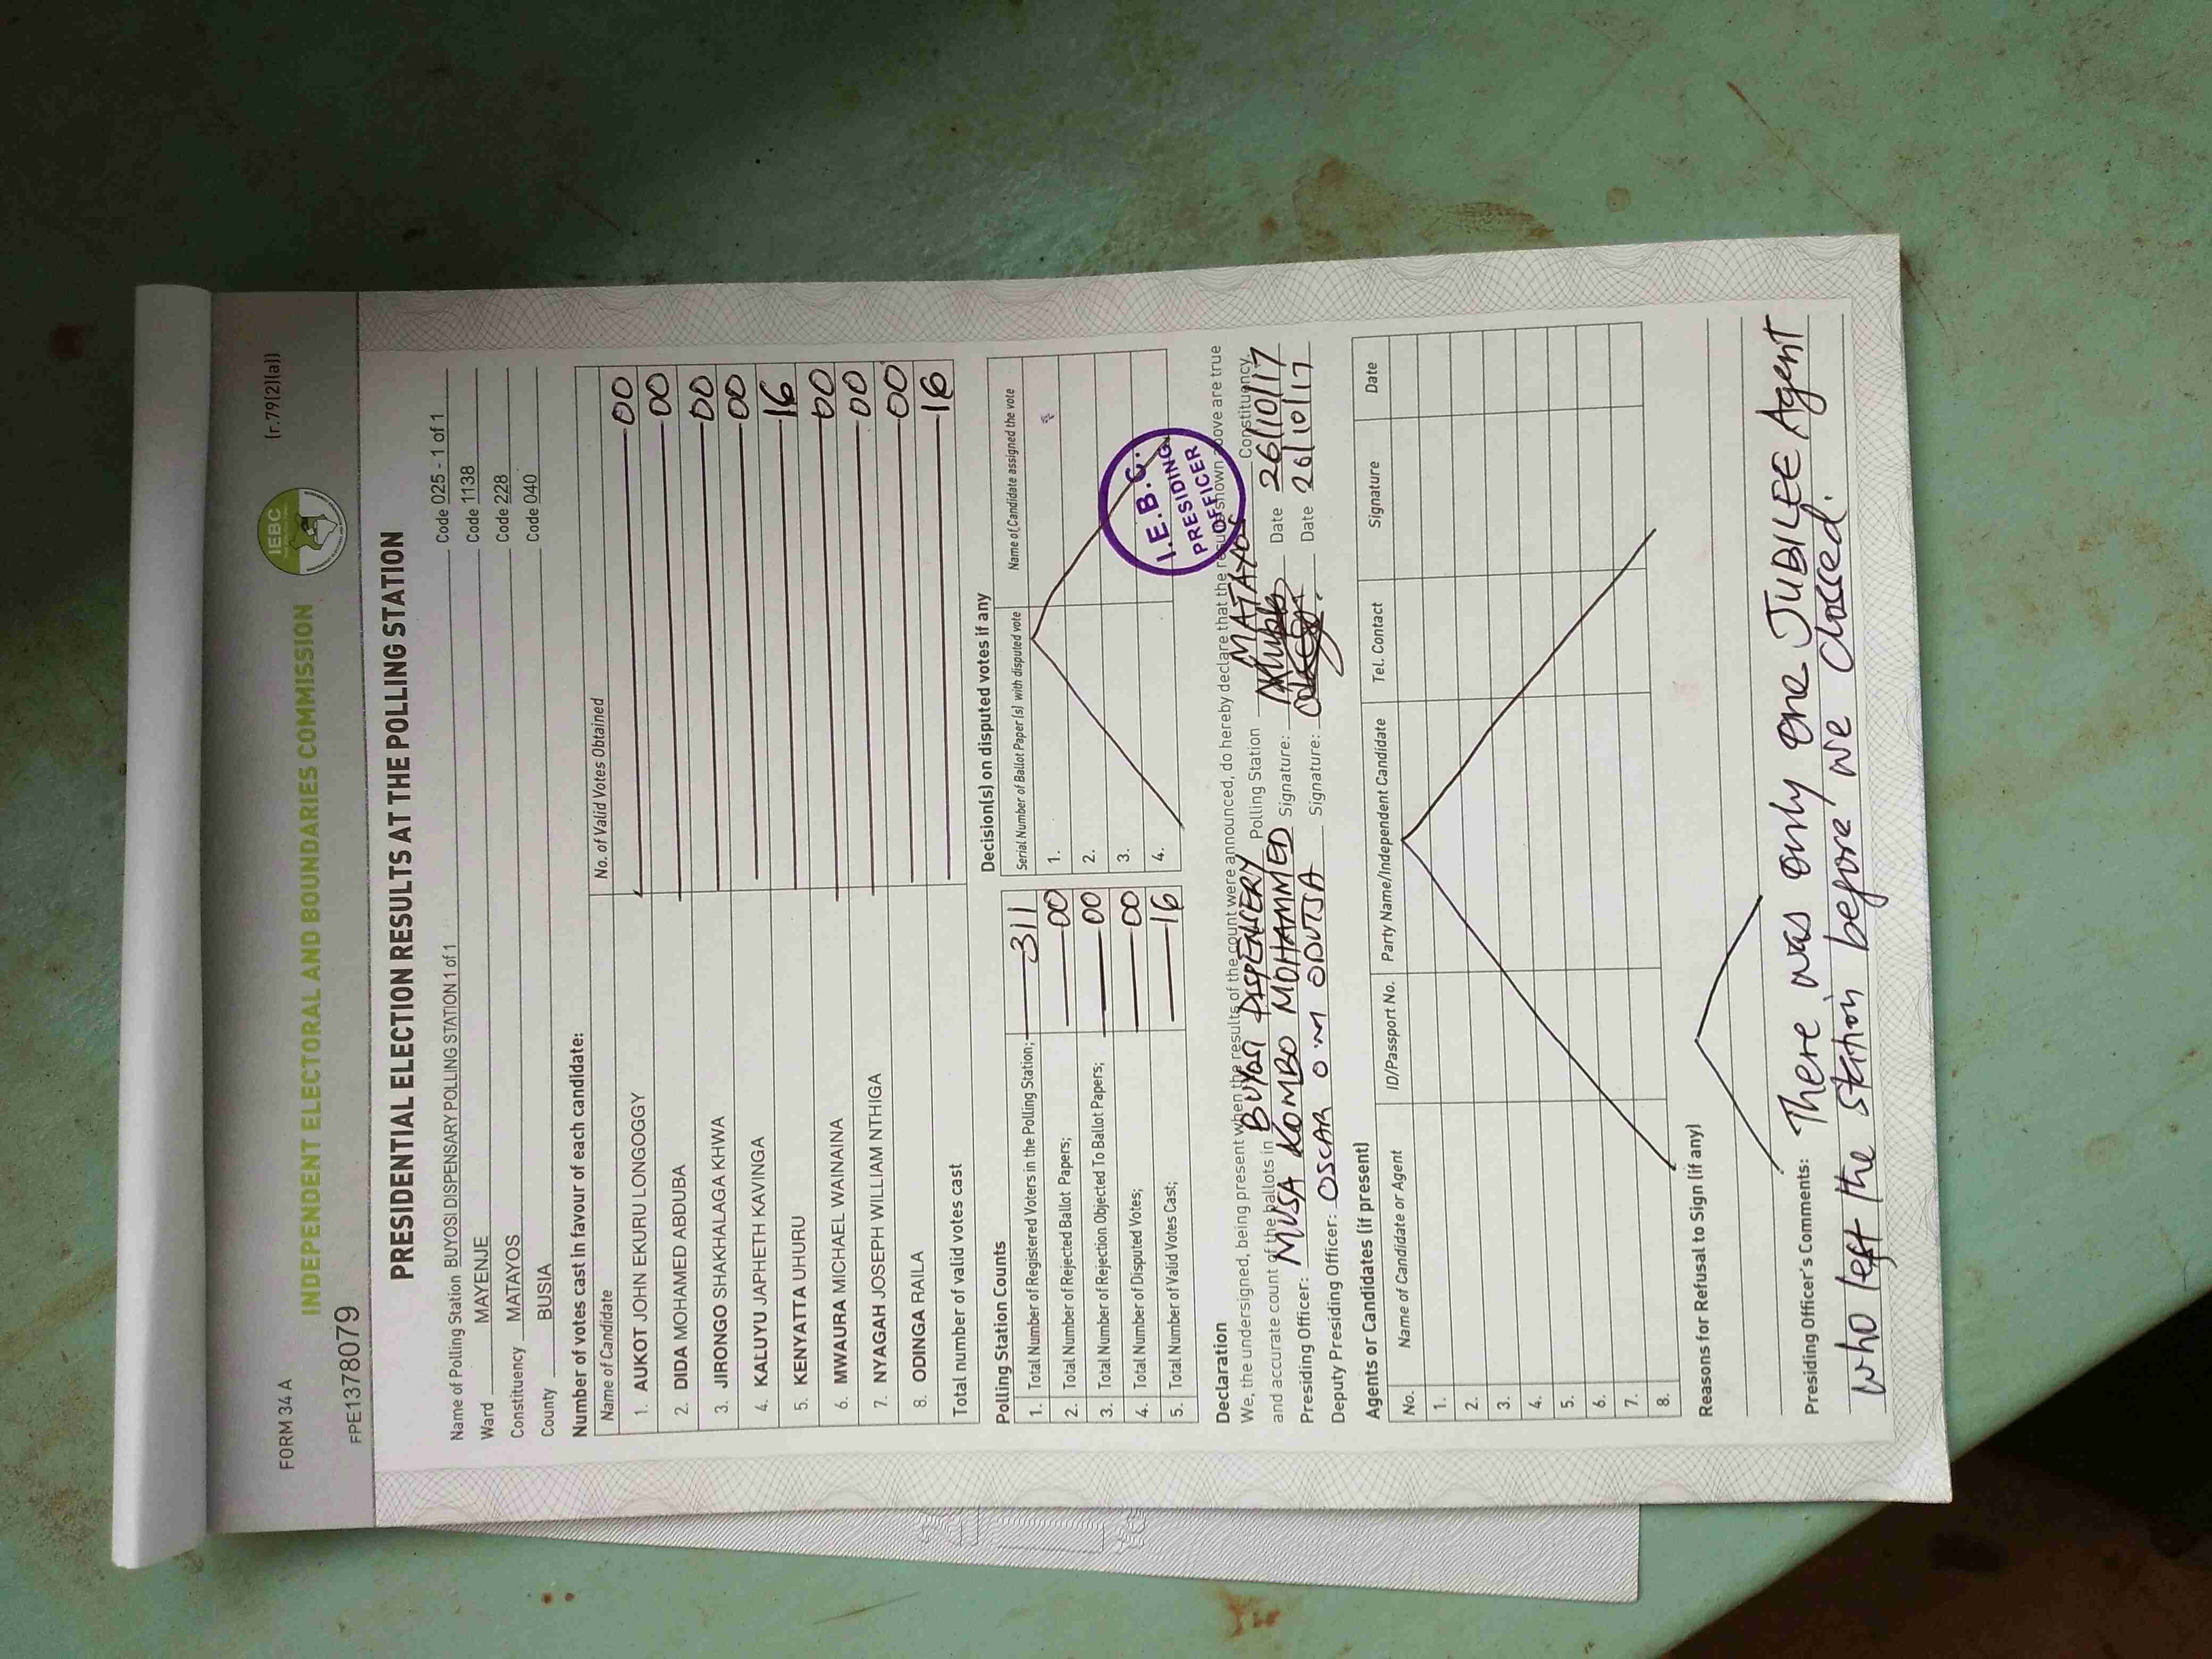 FORM 34 A
(r.79(2)(a))
IEBC
INDEPENDENT ELECTORAL AND BOUNDARIES COMMISSION
FPE1378079
PRESIDENTIAL ELECTION RESULTS AT THE POLLING STATION
Name of Polling Station BUYOSI DISPENSARY POLLING STATION 1 of 1 Code 025 - 1 of 1
Ward MAYENJE Code 1138
Constituency MATAYOS Code 228
County BUSIA Code 040
Number of votes cast in favour of each candidate:
Name of Candidate No. of Valid Votes Obtained
1. AUKOT JOHN EKURU LONGOGGY 00
2. DIDA MOHAMED ABDUBA 00
3. JIRONGO SHAKHALAGA KHWA 00
4. KALUYU JAPHETH KAVINGA 00
5. KENYATTA UHURU 16
6. MWAURA MICHAEL WAINAINA 00
7. NYAGAH JOSEPH WILLIAM NTHIGA 00
8. ODINGA RAILA 00
Total number of valid votes cast 16
Polling Station Counts
1. Total Number of Registered Voters in the Polling Station; 311
2. Total Number of Rejected Ballot Papers; 00
3. Total Number of Rejection Objected To Ballot Papers; 00
4. Total Number of Disputed Votes; 00
5. Total Number of Valid Votes Cast; 16
Decision(s) on disputed votes if any
Serial Number of Ballot Paper(s) with disputed vote Name of Candidate assigned the vote
1.
2.
3.
4.
I.E.B.C.
PRESIDING
OFFICER
Declaration
We, the undersigned, being present when the results of the count were announced, do hereby declare that the results shown above are true
and accurate count of the ballots in BUYOSI DISPENCERY Polling Station MATAYOS Constituency.
Presiding Officer: MUSA KOMBO MOHAMMED Signature: Date 26/10/17
Deputy Presiding Officer: OSCAR O'M ODUTSA Signature: Date 26/10/17
Agents or Candidates (if present)
No. Name of Candidate or Agent ID/Passport No. Party Name/Independent Candidate Tel. Contact Signature Date
1.
2.
3.
4.
5.
6.
7.
8.
Reasons for Refusal to Sign (if any)
Presiding Officer's Comments: There was only one JUBILEE Agent
who left the station before we clossed.